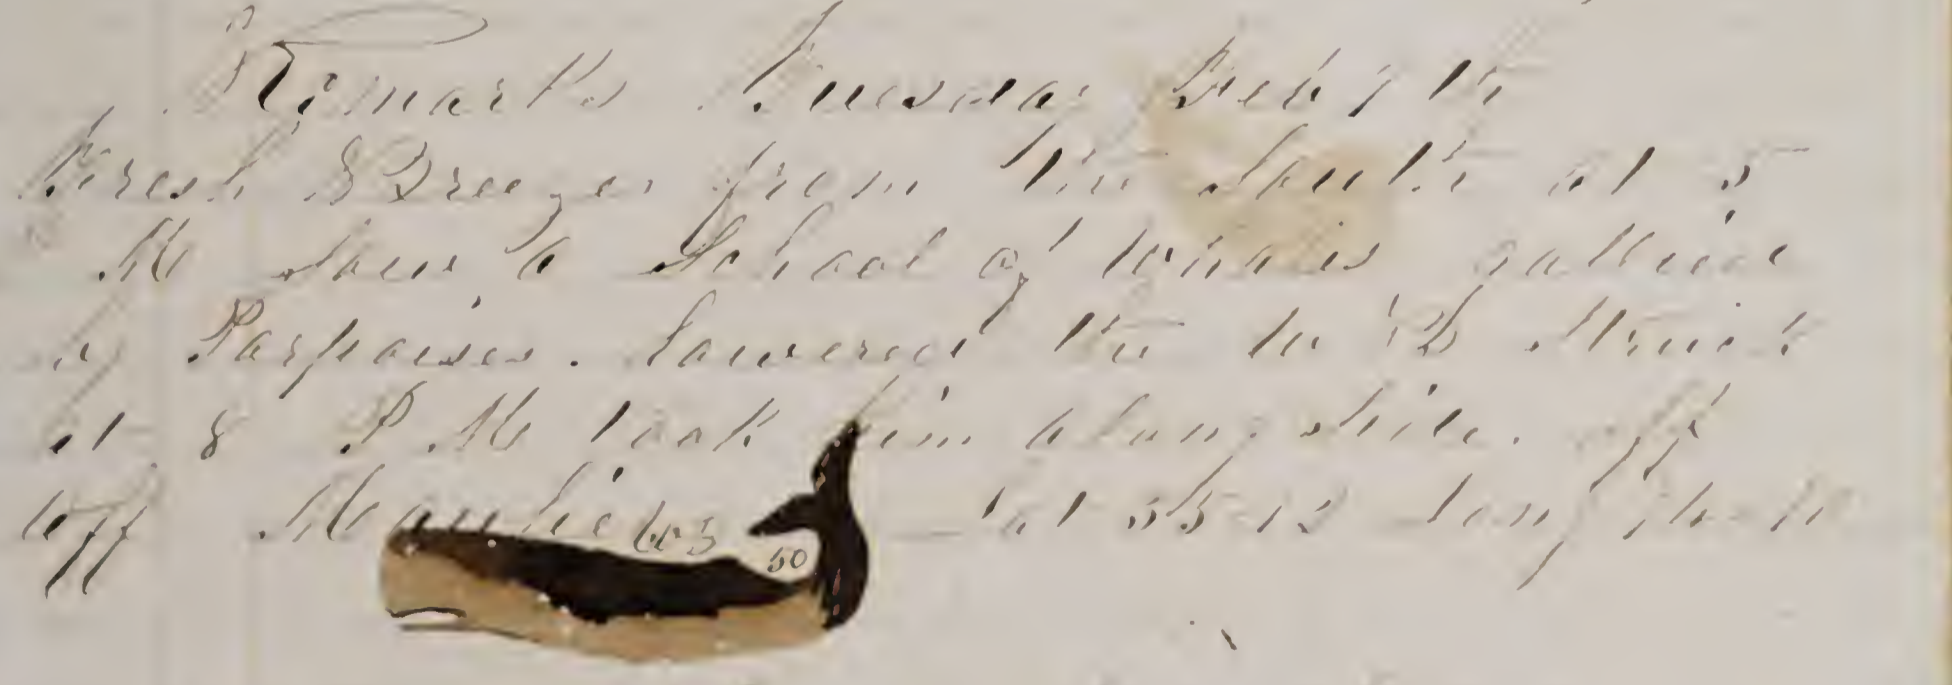 Remarks Tuesday Feb 7th
Fresh Breezes from the South at 5
M Saw a School of whales gallied
by Porpoises. Lowered the W B Struck
at 8 P M took him along side.
Lat 35-12 Long
50